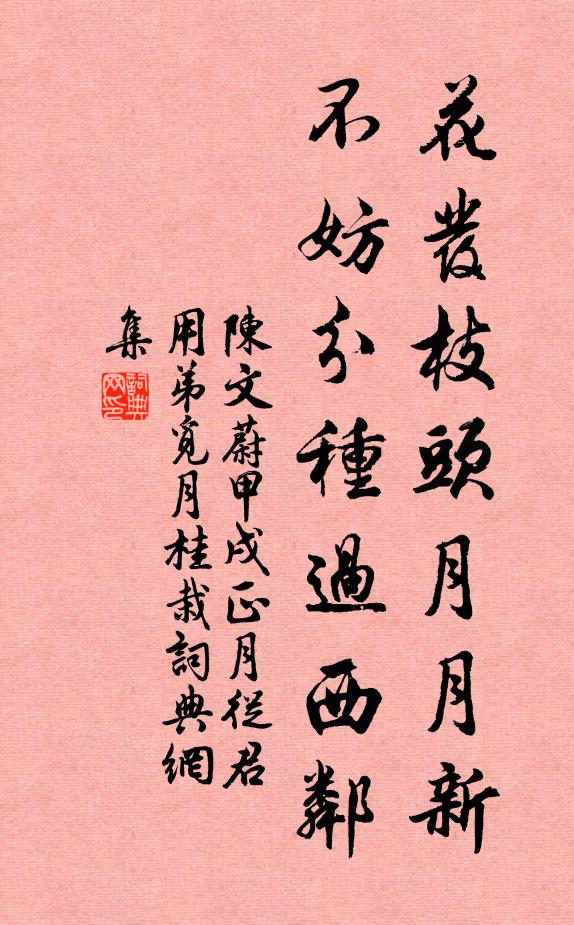 花發枝頭月月新
不妨分種過西鄰
陳文蔚甲戌正月從君
用弟覓月桂栽詞典網
集
詞典
网印